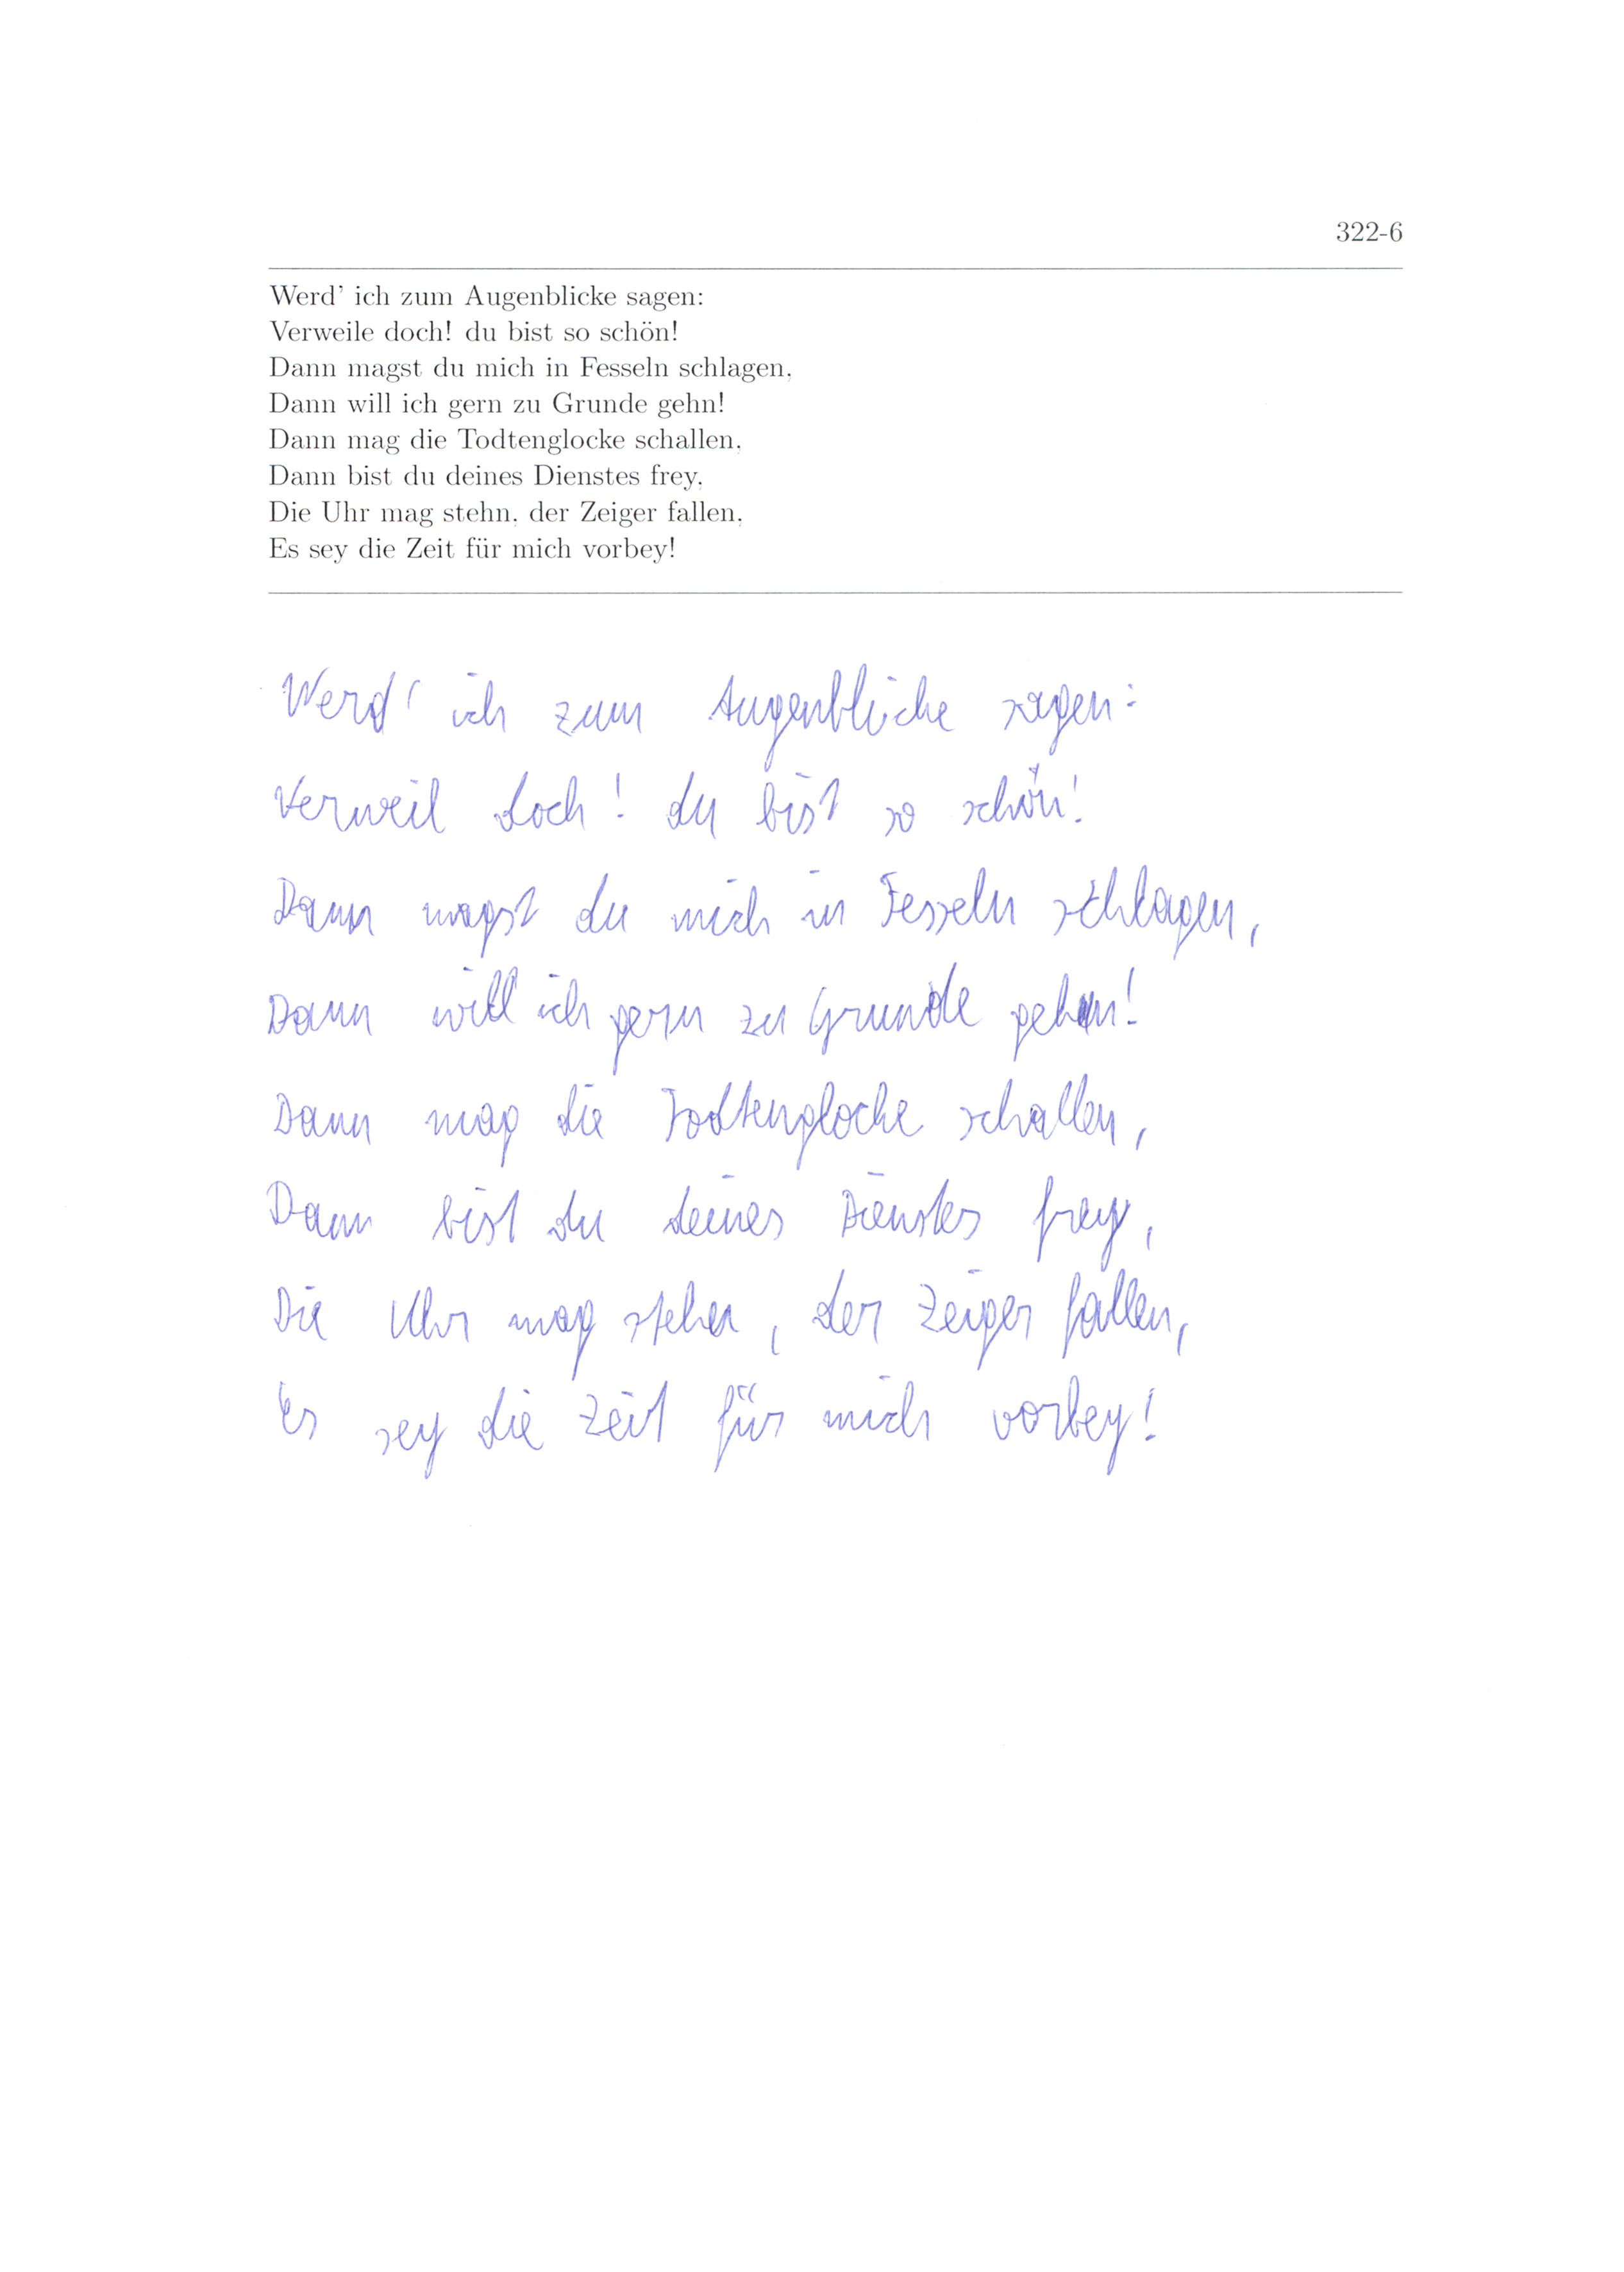 322-6
Werd' ich zum Augenblicke sagen:
Verweile doch! du bist so schön!
Dann magst du mich in Fesseln schlagen,
Dann will ich gern zu Grunde gehn!
Dann mag die Todtenglocke schallen,
Dann bist du deines Dienstes frey,
Die Uhr mag stehn, der Zeiger fallen,
Es sey die Zeit für mich vorbey!
Werd' ich zum Augenblicke sagen:
Verweil doch! du bist so schön!
Dann magst du mich in Fesseln schlagen,
Dann will ich gern zu Grunde gehn!
Dann mag die Todtenglocke schallen,
Dann bist du deines Dienstes frey,
Die Uhr mag stehen, der Zeiger fallen,
Es sey die Zeit für mich vorbey!